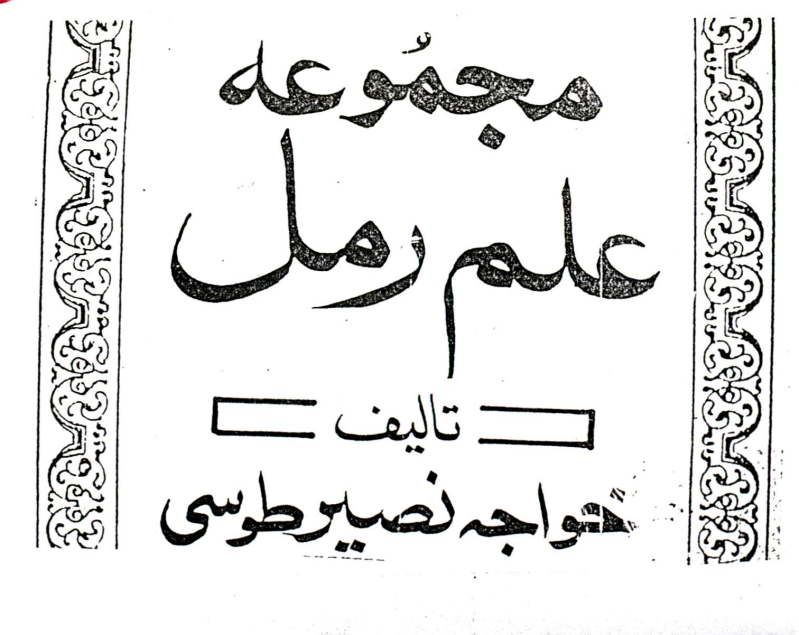 مجمُوعه
علم رمل
تالیف
خواجه نصیر طوسی